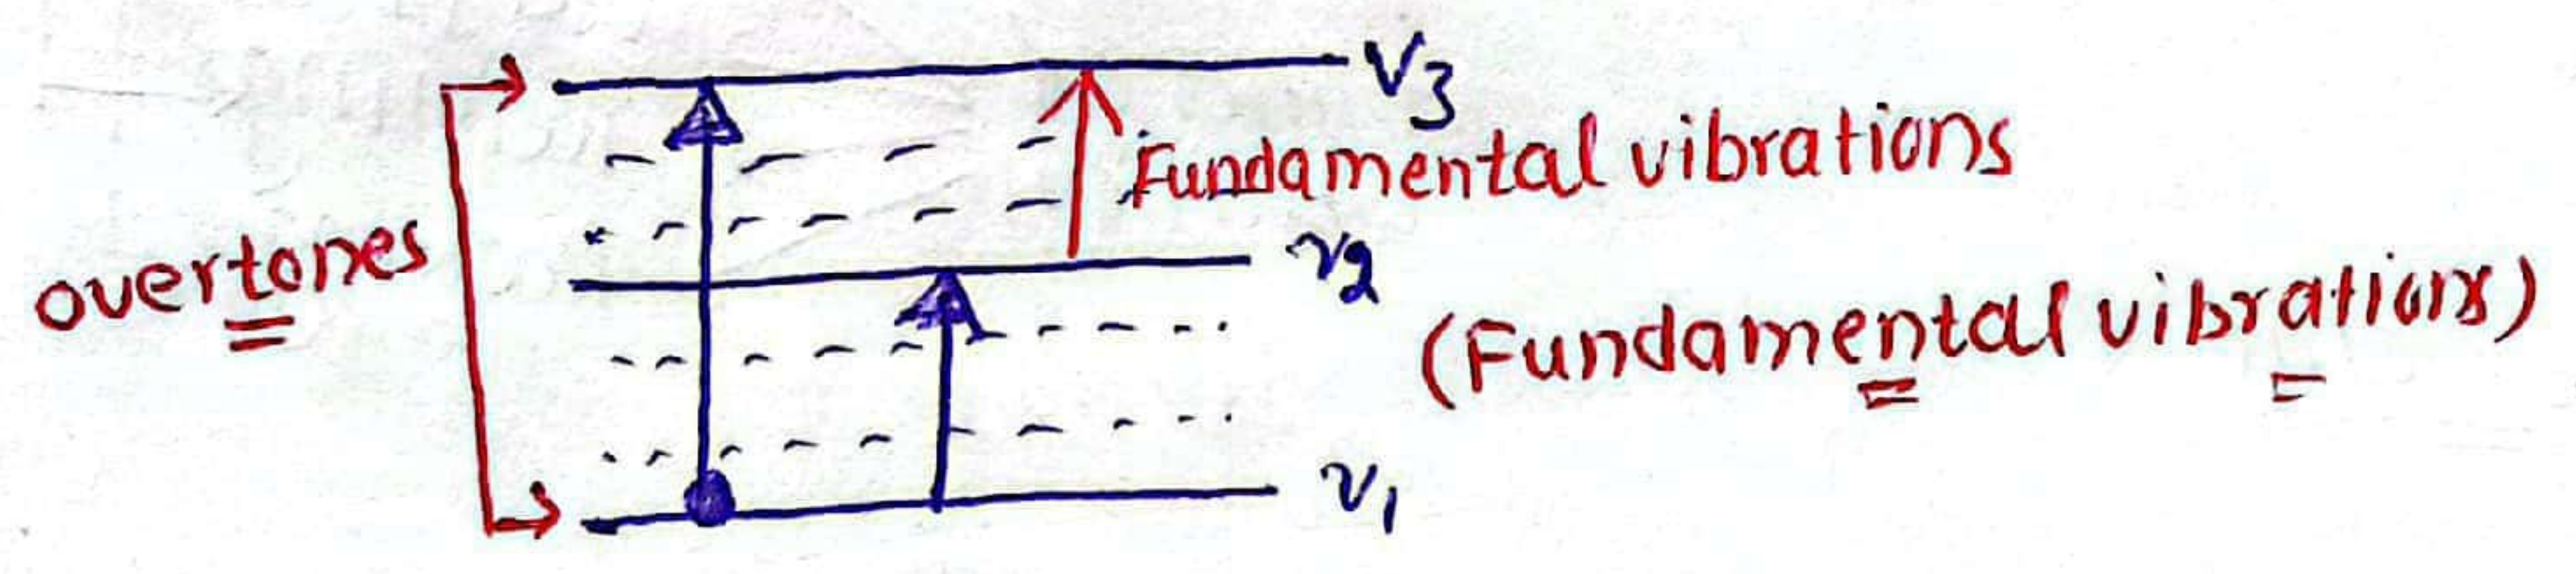 V3
Fundamental vibrations
overtones
v2
(Fundamental vibrations)
v1